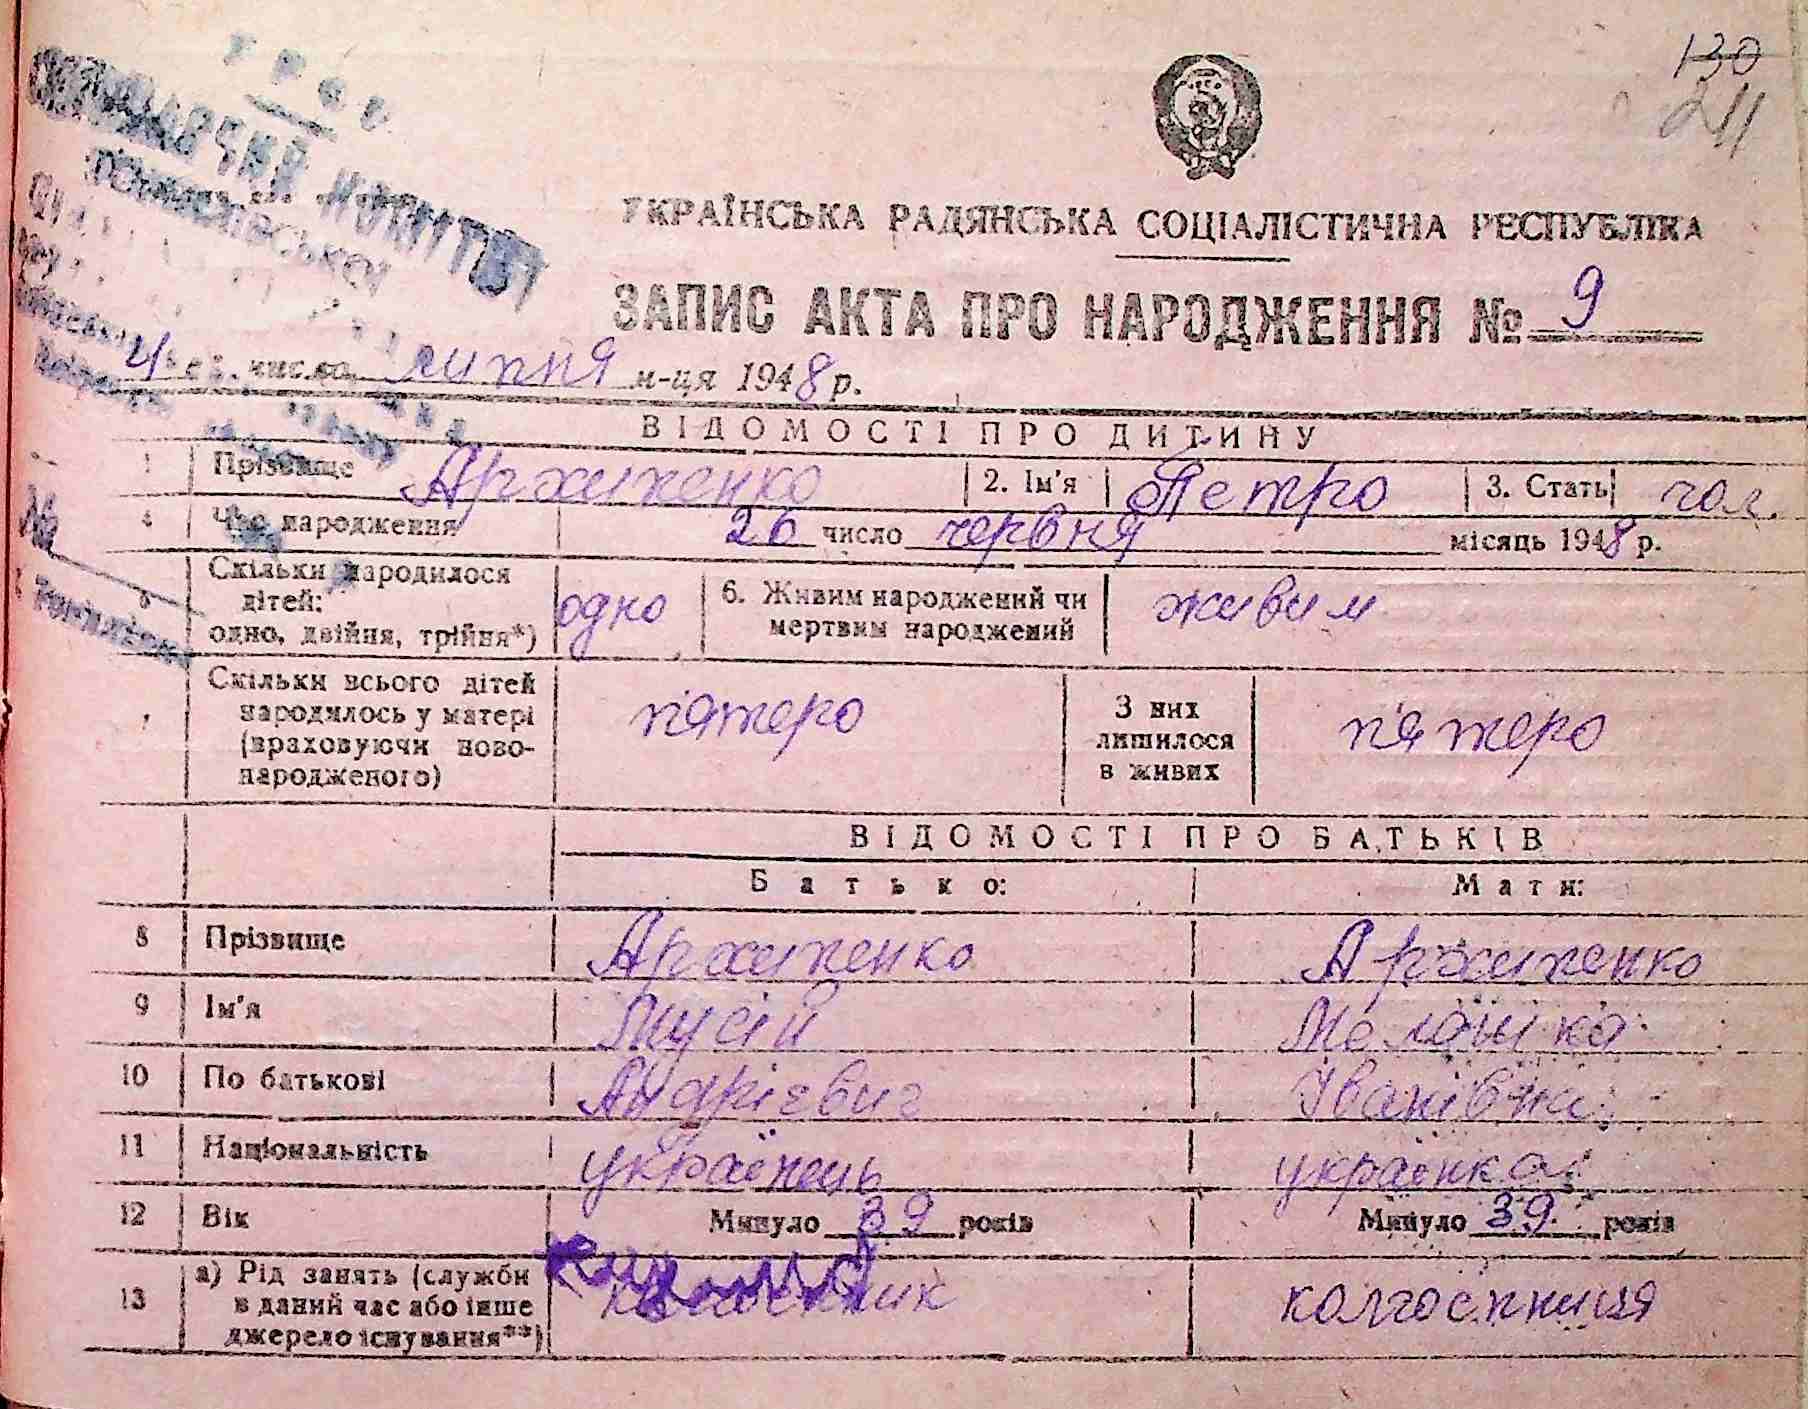 130
211
УРСР
ВИКОНАВЧИЙ КОМІТЕТ
УКРАЇНСЬКА РАДЯНСЬКА СОЦІАЛІСТИЧНА РЕСПУБЛІКА
ЗАПИС АКТА ПРО НАРОДЖЕННЯ № 9
число липня м-ця 1948 р.
ВІДОМОСТІ ПРО ДИТИНУ
1 Прізвище Архипенко 2. Ім'я Петро 3. Стать чол.
4 Час народження 26 число червня місяць 1948 р.
5 Скільки народилося дітей: одно, двійня, трійня*) одно 6. Живим народжений чи мертвим народжений живим
7 Скільки всього дітей народилось у матері (враховуючи новонародженого) п'ятеро З них лишилося в живих п'ятеро
ВІДОМОСТІ ПРО БАТЬКІВ
Батько: Мати:
8 Прізвище Архипенко Архипенко
9 Ім'я Мусій Меланка
10 По батькові Андрієвич Іванівна
11 Національність українець українка
12 Вік Минуло 39 років Минуло 39 років
13 а) Рід занять (служби в даний час або інше джерело існування**) колгоспник колгоспниця